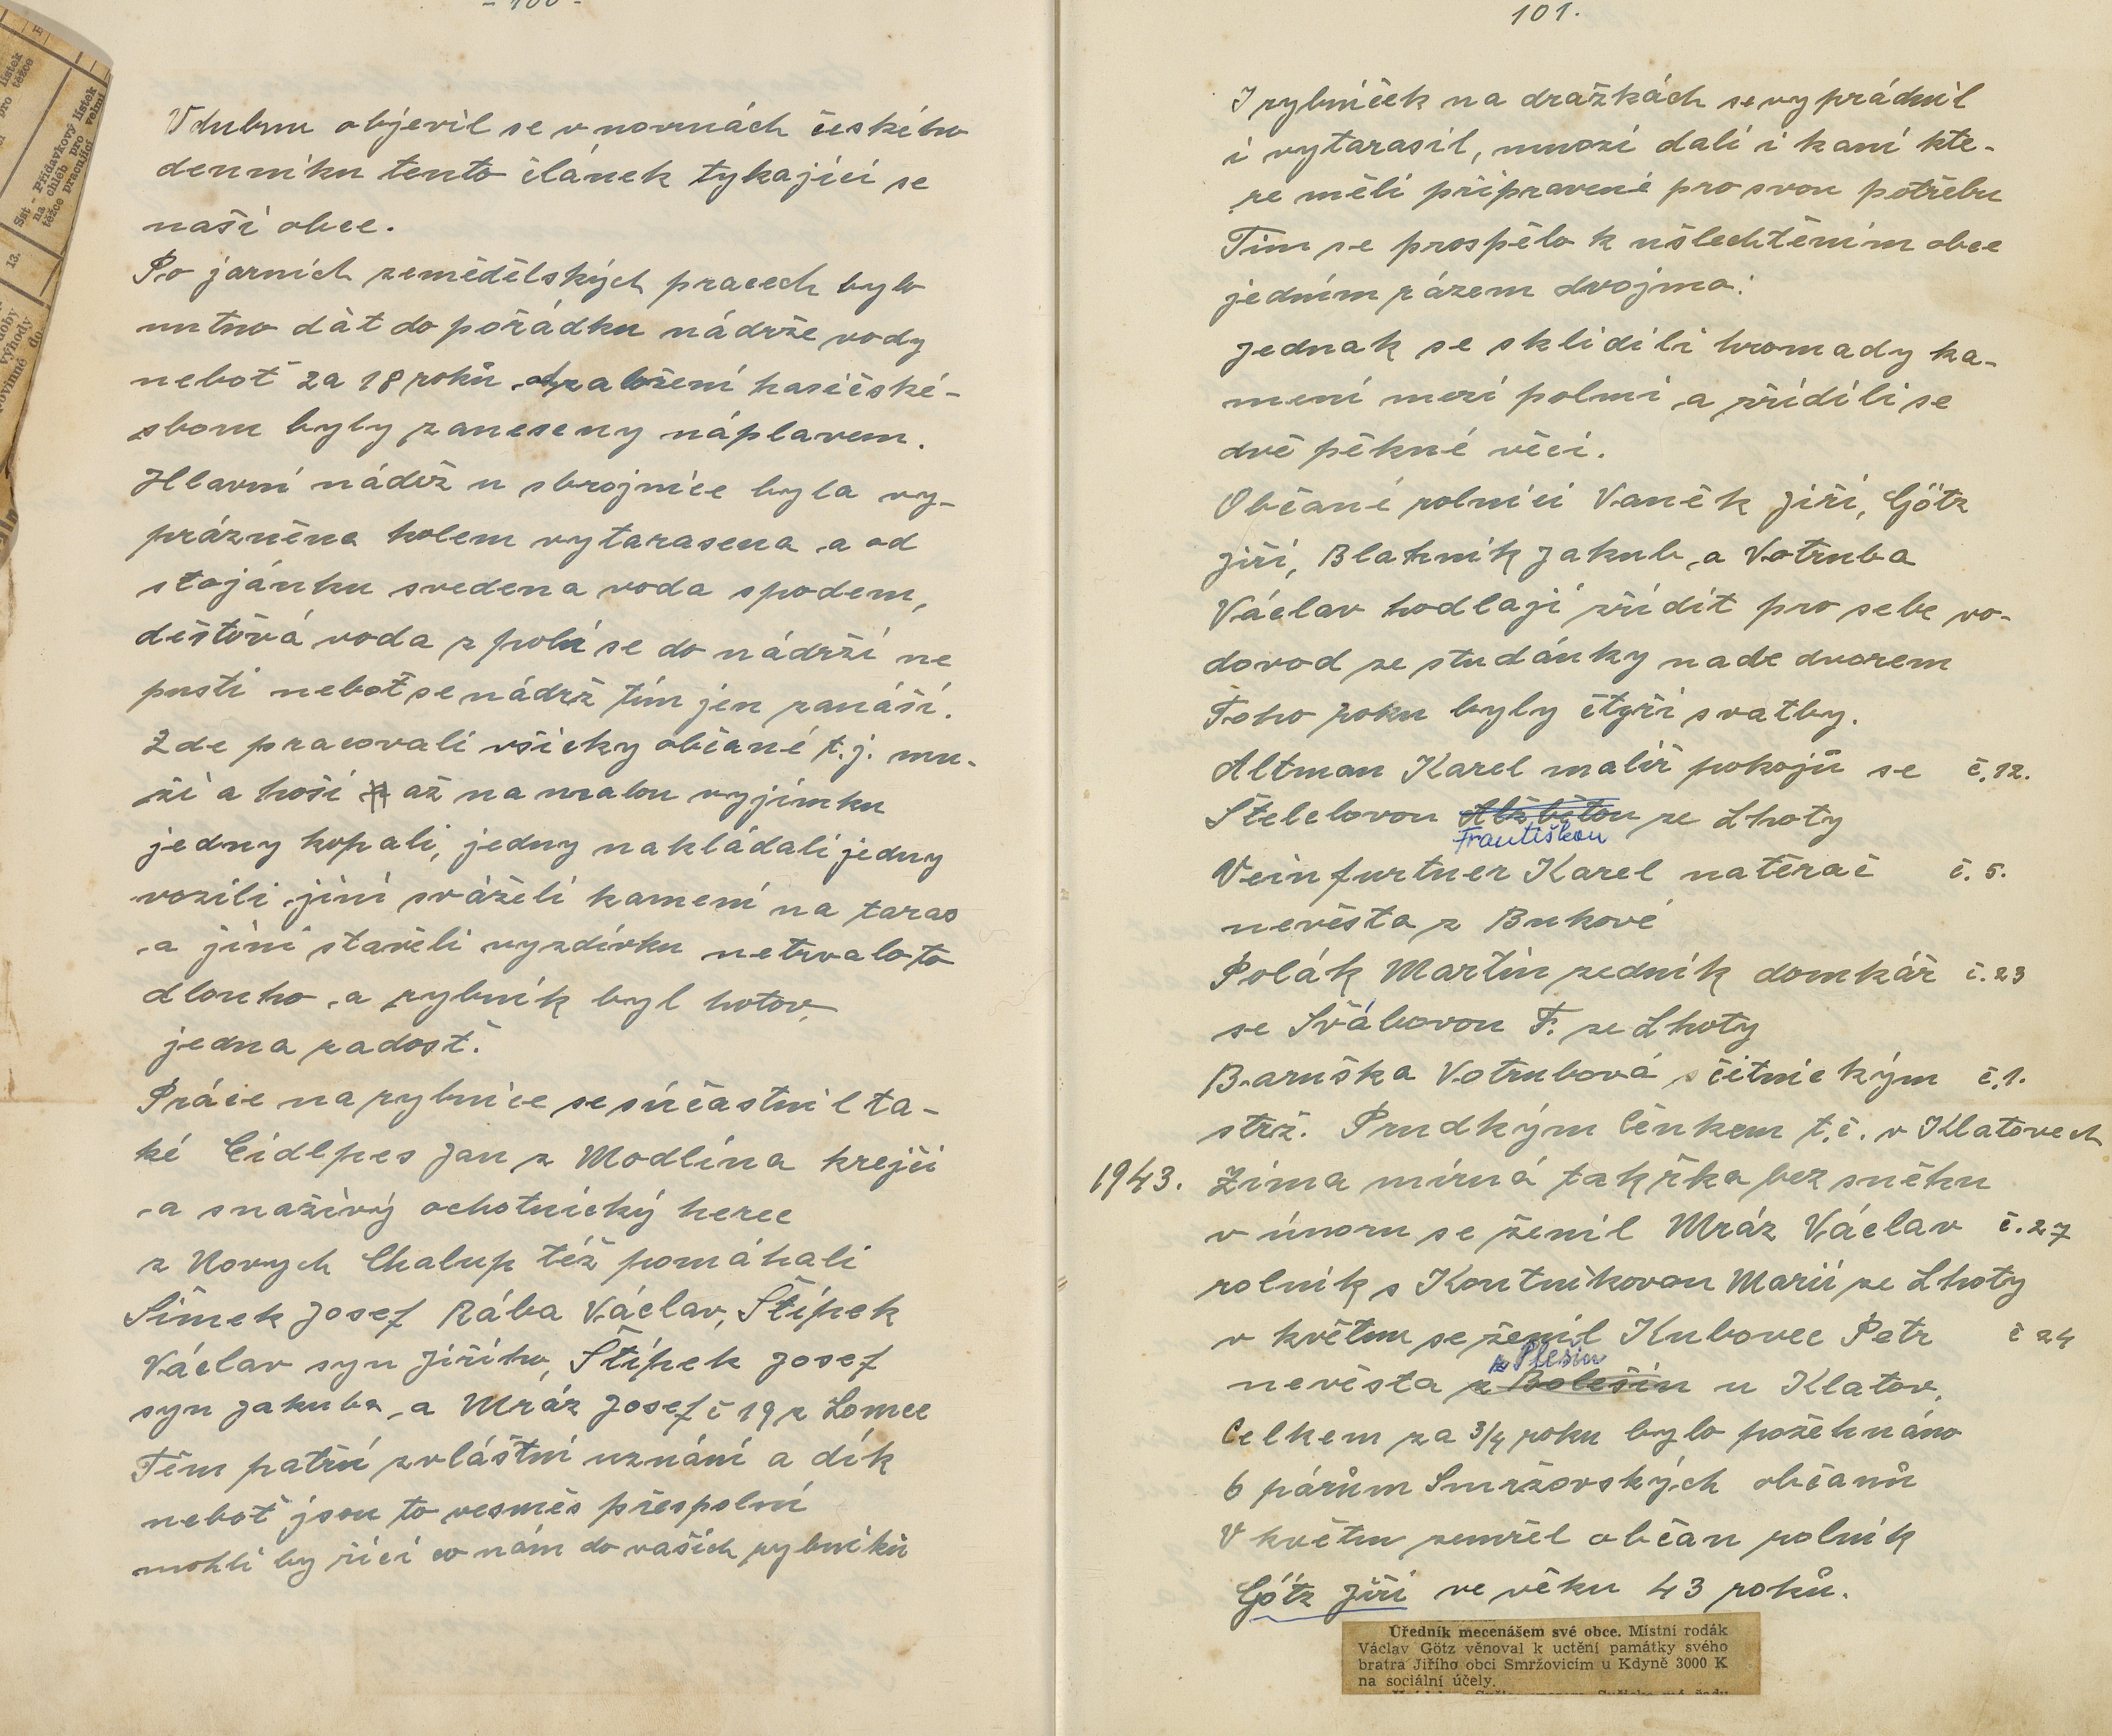 - 100 -
V dubnu objevil se v novinách českého
denníku tento článek tykající se
naší obce.
Po jarních zemědělských pracech bylo
nutno dát do pořádku nádrže vody
neboť za 18 roků od založení hasičské-
sboru byly zaneseny náplavem.
Hlavní nádrž u sbrojnice byla vy-
prázněna kolem vytarasena a od
stojánku svedena voda spodem,
dešťová voda z polí se do nádrží ne
pustí neboť se nádrž tím jen zanáší.
Zde pracovali všicky občané t.j. mu-
ži a hoši až na malou vyjímku
jedny kopali, jedny nakládali jedny
vozili jiní sváželi kamení na taras
a jiní stavěli vyzdívku netrvalo to
dlouho a rybník byl hotov,
jedna radosť.
Práce na rybnice se súčastnil ta-
ké Cidlpes Jan z Modlína krejčí
a snaživý ochotnický herec
z Novych Chalup též pomáhali
Šimek Josef Rába Václav, Štípek
Václav syn Jiřího, Štípek Josef
syn Jakuba a Mráz Josef č 19 z Lomce
Těm patří zvláštní uznání a dík
neboť jsou to vesměs přespolní
mohli by říci co nám do vašich rybníků
101.
I rybníček na dražkách se vyprádnil
i vytarasil, mnozí dali i kamí kte-
re měli připravené pro svou potřebu
Tim se prospělo k ušlechtěním obce
jedním rázem dvojmo:
jednak se sklidili hromady ka-
mení mezi polmi a zřídili se
dvě pěkné věci.
Občané rolníci Vaněk Jiří, Götz
Jiří, Blahník Jakub a Votruba
Václav hodlají zřídit pro sebe vo-
dovod ze studánky nade dvorem
Toho roku byly čtyři svatby.
Altman Karel malíř pokojů se č. 12.
Štelclovou Alžbětou ze Lhoty
Františkou
Veinfurtner Karel natěrač č. 5.
nevěsta z Bukové
Polák Martin zedník domkář č. 23
se Švábovou F. ze Lhoty
Baruška Votrubová s četnickým č. 1.
strž. Prudkým Čenkem t.č. v Klatovech
1943. Zima mírná takřka bez sněhu
v únoru se ženil Mráz Václav č. 27
rolník s Koutníkovou Marií ze Lhoty
v květnu se ženil Kubovec Petr č 24
z Plešin
nevěsta z Bolešin u Klatov.
Celkem za 3/4 roku bylo požehnáno
6 párům Smržovských občanů
V květnu zemřel občan rolník
Götz Jiří ve věku 43 roků.
Úředník mecenášem své obce. Místní rodák
Václav Götz věnoval k uctění památky svého
bratra Jiřího obci Smržovicím u Kdyně 3000 K
na sociální účely.
Sst - Přídavkový lístek
na chléb pro velmi
těžce pracující
13.
lístek
pro těžce
výhody